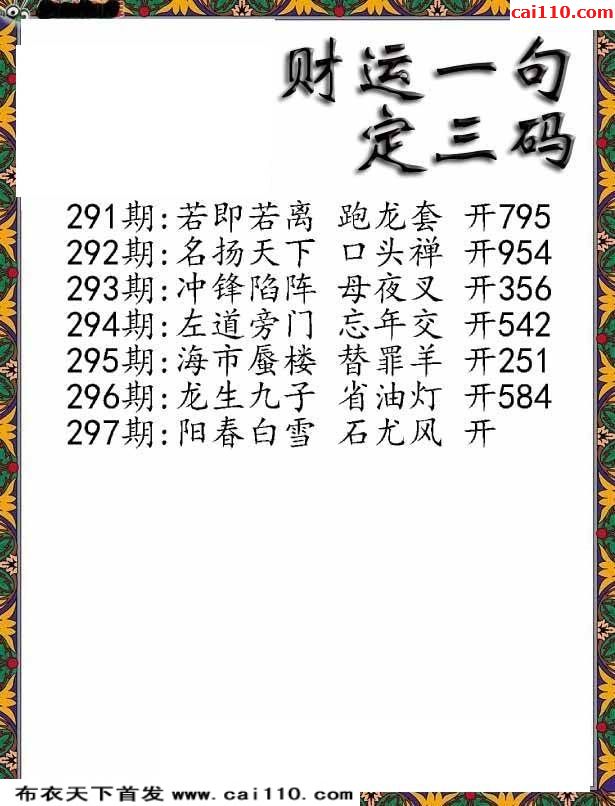 cai110.com
财运一句
定三码
291期:若即若离 跑龙套 开795
292期:名扬天下 口头禅 开954
293期:冲锋陷阵 母夜叉 开356
294期:左道旁门 忘年交 开542
295期:海市蜃楼 替罪羊 开251
296期:龙生九子 省油灯 开584
297期:阳春白雪 石尤风 开
布衣天下首发 www.cai110.com